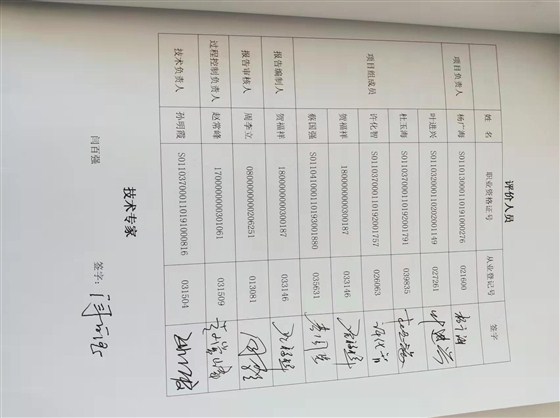 评价人员
姓 名 职业资格证号 从业登记号 签字
项目负责人 杨广海 S011013000110191000276 021600
项目组成员 叶进兴 S011032000110202001149 027261
杜玉海 S011037000110192001791 039835
许化智 S011037000110192001757 026063
贺福祥 1800000000300187 033146
蔡国强 S011041000110193001880 035631
报告编制人 贺福祥 1800000000300187 033146
报告审核人 周李立 0800000000206251 013081
过程控制负责人 赵常峰 1700000000301061 031509
技术负责人 孙明霞 S011037000110191000816 031504
技术专家
闫百强 签字: